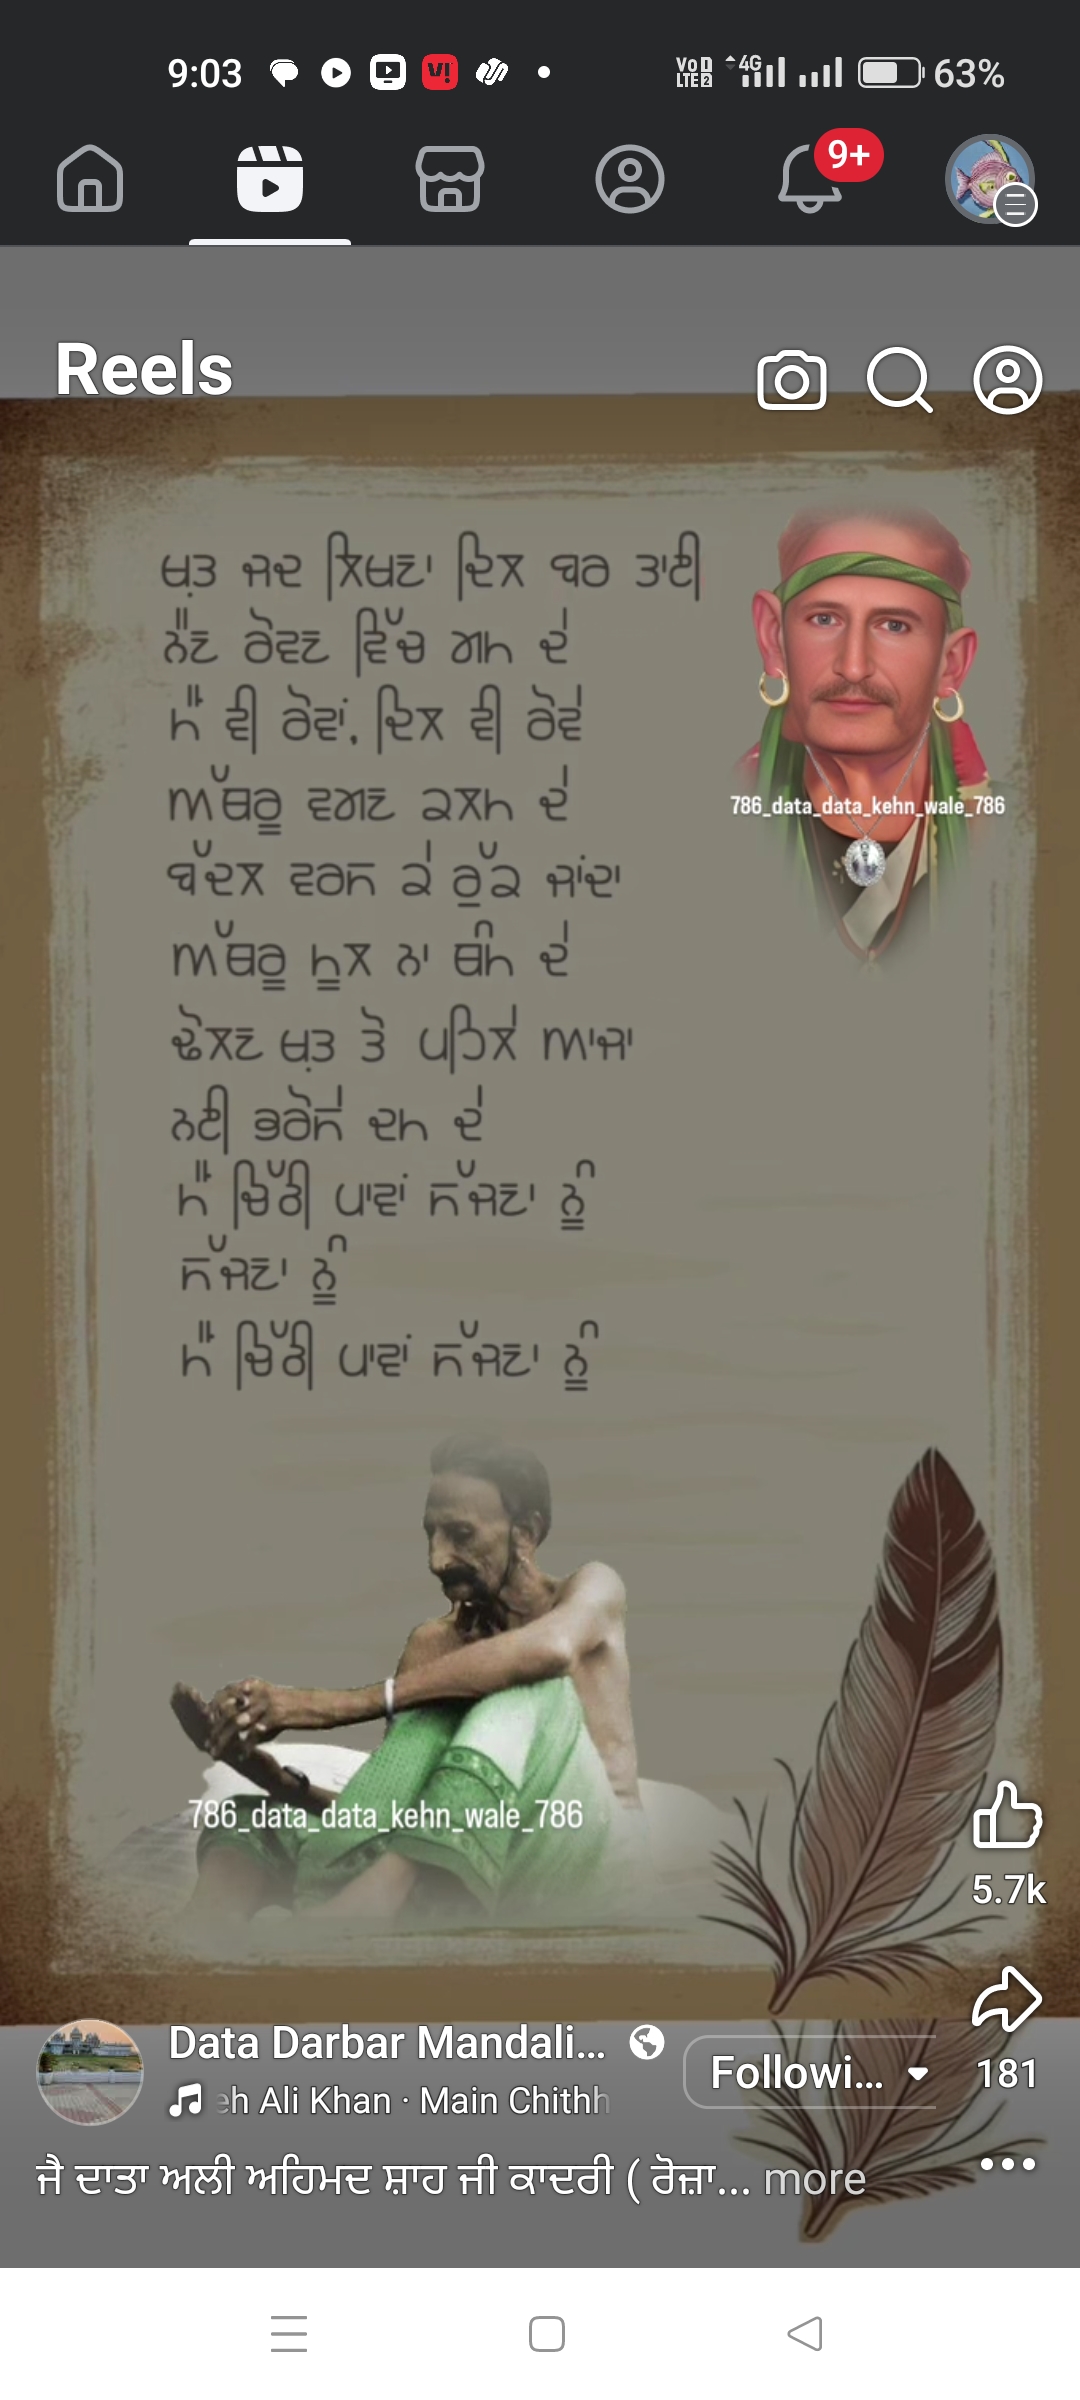 9:03
Vo LTE 1 2 4G 63%
9+
Reels
ਖ਼ਤ ਜਦ ਲਿਖਣਾ ਦਿਲ ਬਰ ਤਾਈਂ
ਨੈਣ ਰੋਵਣ ਵਿੱਚ ਗਮ ਦੇ
ਮੈਂ ਵੀ ਰੋਵਾਂ, ਦਿਲ ਵੀ ਰੋਵੇ
ਅੱਥਰੂ ਵਗਣ ਕਲਮ ਦੇ
786_data_data_kehn_wale_786
ਬੱਦਲ ਵਰਸ ਕੇ ਰੁੱਕ ਜਾਂਦਾ
ਅੱਥਰੂ ਮੂਲ ਨਾ ਥੰਮ ਦੇ
ਢੋਲਣ ਖ਼ਤ ਤੋ ਪਹਿਲੇ ਆਜਾ
ਨਈ ਭਰੋਸੇ ਦਮ ਦੇ
ਮੈਂ ਚਿੱਠੀ ਪਾਵਾਂ ਸੱਜਣਾ ਨੂੰ
ਸੱਜਣਾ ਨੂੰ
ਮੈਂ ਚਿੱਠੀ ਪਾਵਾਂ ਸੱਜਣਾ ਨੂੰ
786_data_data_kehn_wale_786
5.7k
Data Darbar Mandali...
Followi...
181
eh Ali Khan · Main Chithh
ਜੈ ਦਾਤਾ ਅਲੀ ਅਹਿਮਦ ਸ਼ਾਹ ਜੀ ਕਾਦਰੀ ( ਰੋਜ਼ਾ... more